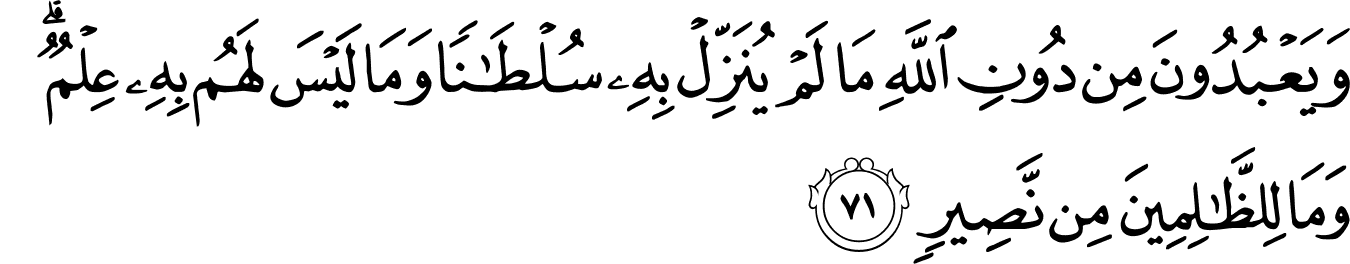 وَيَعۡبُدُونَ مِن دُونِ ٱللَّهِ مَا لَمۡ يُنَزِّلۡ بِهِۦ سُلۡطَٰنٗا وَمَا لَيۡسَ لَهُم بِهِۦ عِلۡمٞۗ
وَمَا لِلظَّٰلِمِينَ مِن نَّصِيرٖ ٧١